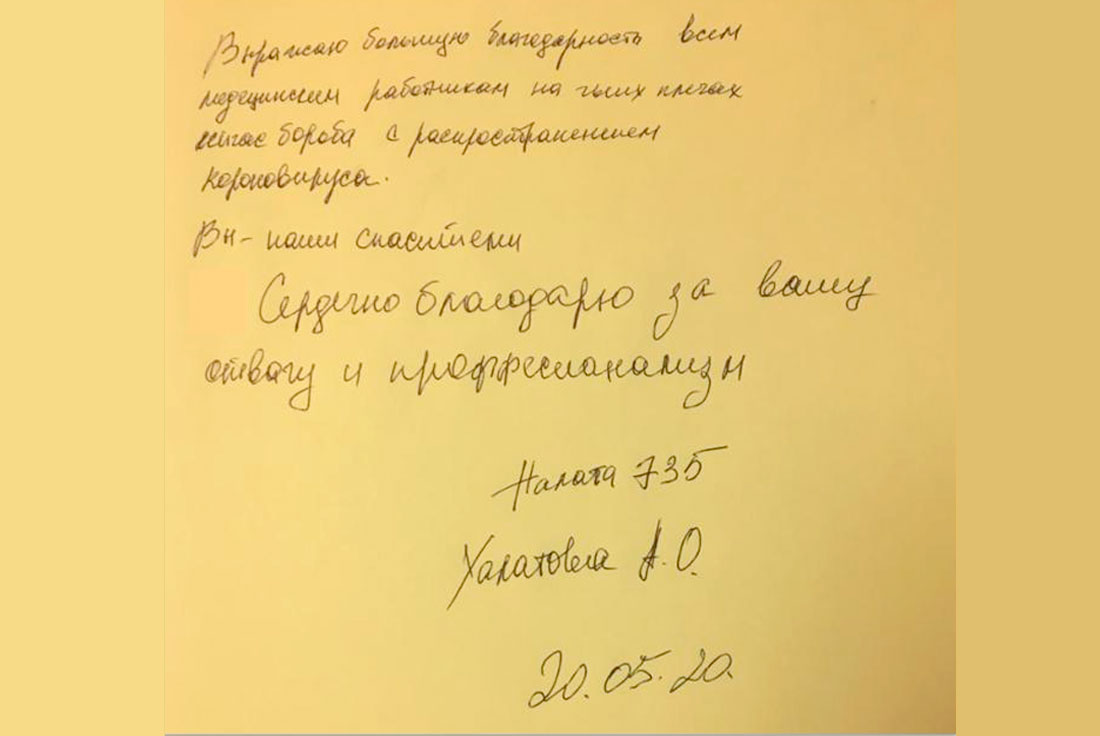 Выражаю большую благодарность всем
медецинским работникам на чьих плечах
сейчас бороба с распространением
короновируса.
Вы - наши спасители
Сердечно благодарю за вашу
отвагу и профессионализм
Палата 735
А.О.
20.05.20.